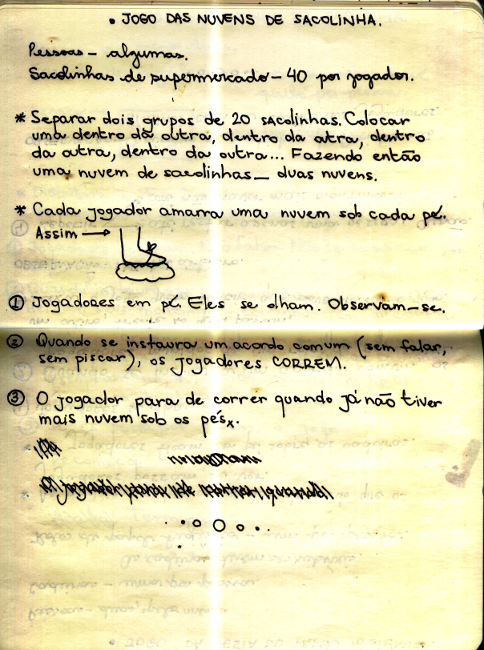 • JOGO DAS NUVENS DE SACOLINHA.
Pessoas - algumas.
Sacolinhas de supermercado - 40 por jogador.
* Separar dois grupos de 20 sacolinhas. Colocar
uma dentro da outra, dentro da atra, dentro
da atra, dentro da outra... Fazendo então
uma nuvem de sacolinhas _ duas nuvens.
* Cada jogador amarra uma nuvem sob cada pé.
Assim →
① Jogadores em pé. Eles se olham. Observam-se.
② Quando se instaura um acordo comum (sem falar,
sem piscar), os jogadores CORREM.
③ O jogador para de correr quando já não tiver
mais nuvem sob os pés.